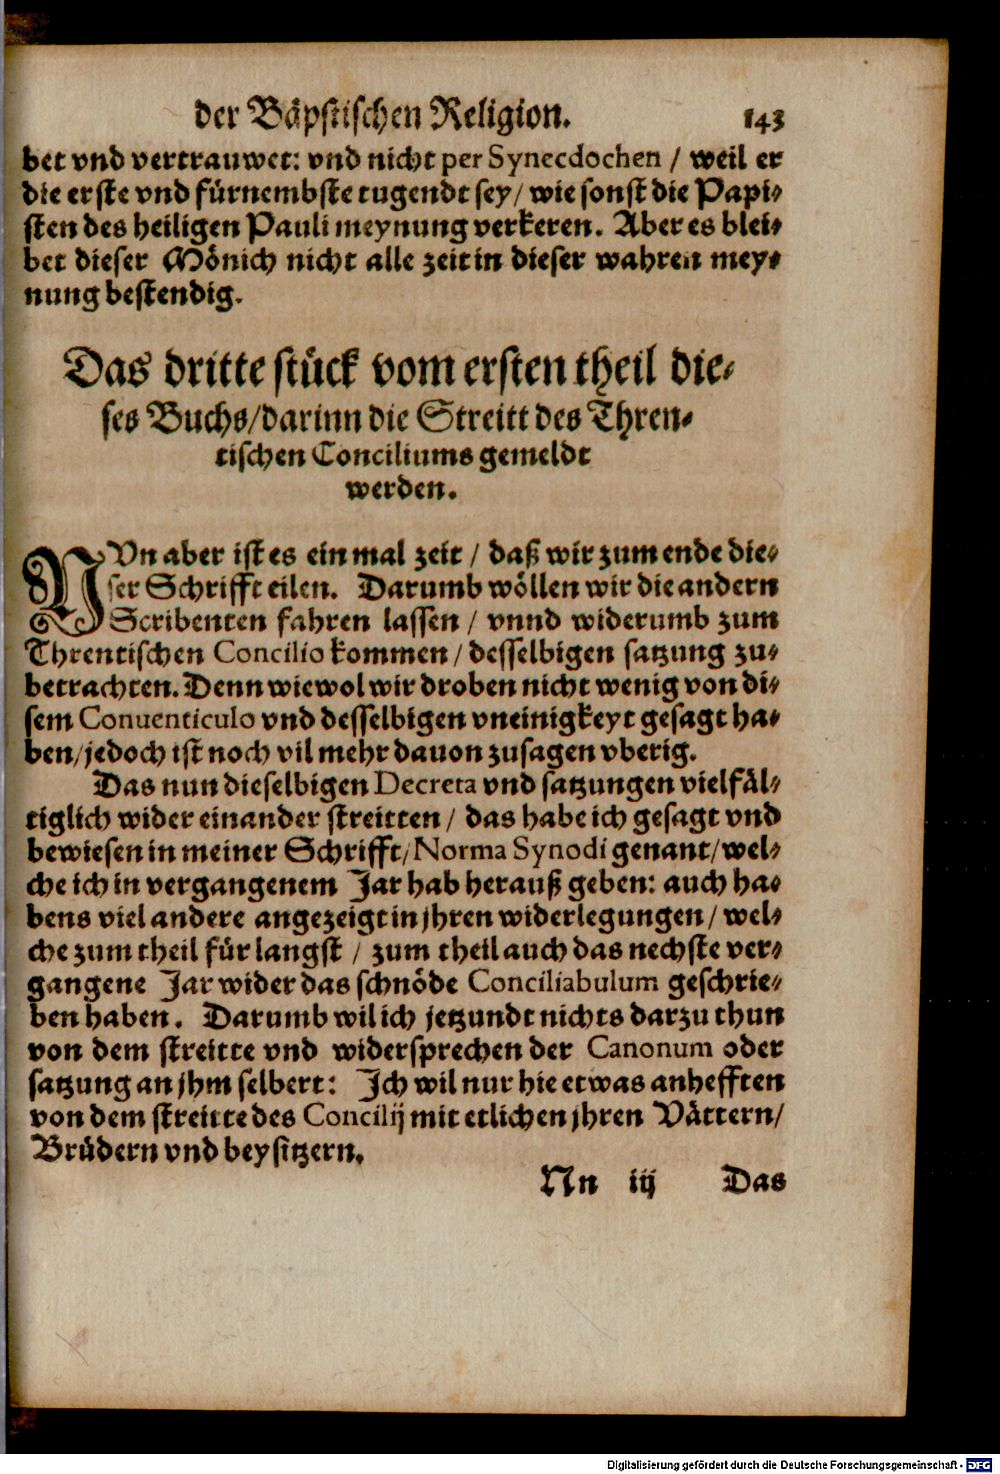 der Bäpstischen Religion. 143
bet vnd vertrauwet: vnd nicht per Synecdochen / weil er
die erste vnd fürnembste tugendt sey/ wie sonst die Papi-
sten des heiligen Pauli meynung verkeren. Aber es blei-
bet dieser Mönich nicht alle zeit in dieser wahren mey-
nung bestendig.
Das dritte stück vom ersten theil die-
ses Buchs/darinn die Streitt des Thren-
tischen Conciliums gemeldt
werden.
NVn aber ist es ein mal zeit / daß wir zum ende die-
ser Schrifft eilen. Darumb wöllen wir die andern
Scribenten fahren lassen / vnnd widerumb zum
Threntischen Concilio kommen / desselbigen satzung zu-
betrachten. Denn wiewol wir droben nicht wenig von di-
sem Conuenticulo vnd desselbigen vneinigkeyt gesagt ha-
ben/jedoch ist noch vil mehr dauon zusagen vberig.
Das nun dieselbigen Decreta vnd satzungen vielfäl-
tiglich wider einander streitten / das habe ich gesagt vnd
bewiesen in meiner Schrifft/Norma Synodi genant/wel-
che ich in vergangenem Jar hab herauß geben: auch ha-
bens viel andere angezeigt in jhren widerlegungen / wel-
che zum theil für langst / zum theil auch das nechste ver-
gangene Jar wider das schnöde Conciliabulum geschrie-
ben haben. Darumb wil ich jetzundt nichts darzu thun
von dem streitte vnd widersprechen der Canonum oder
satzung an jhm selbert: Ich wil nur hie etwas anhefften
von dem streitte des Concilij mit etlichen jhren Vättern/
Brüdern vnd beysitzern.
Nn iij Das
Digitalisierung gefördert durch die Deutsche Forschungsgemeinschaft - DFG